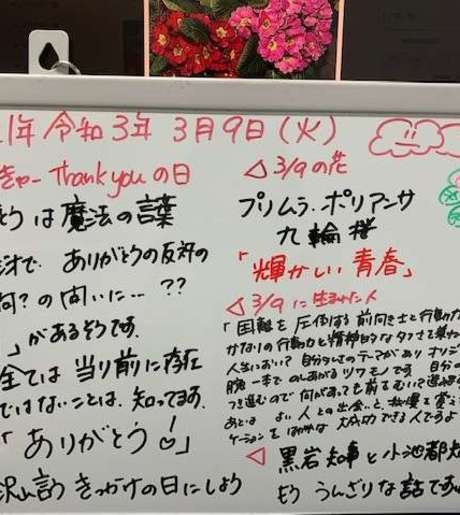 1年 令和3年 3月9日(火)
きゃー Thank you の日
とうは魔法の言葉
で、ありがとうの反対の
何?の問いに…??
」があるそうです
全ては当り前に存在
ではないことは、知ってます。
「ありがとう!」
沢山言うきっかけの日にしよう
◁ 3/9の花
プリムラ・ポリアンサ
九輪桜
「輝かしい青春」
◁ 3/9に生まれた人
「国難を圧倒する前向きさと行動力
かなりの行動力と精神的なタフさを兼
人生において自分なりのテーマがありオリジ
腕一本でのしあがるツワモノです 自分の
つき進むので何があっても前
あとはよい人との出会いと、
ケーションを 大成功できる人ですよ
◁ 黒岩知事と小池都知
もう うんざりな話ですね